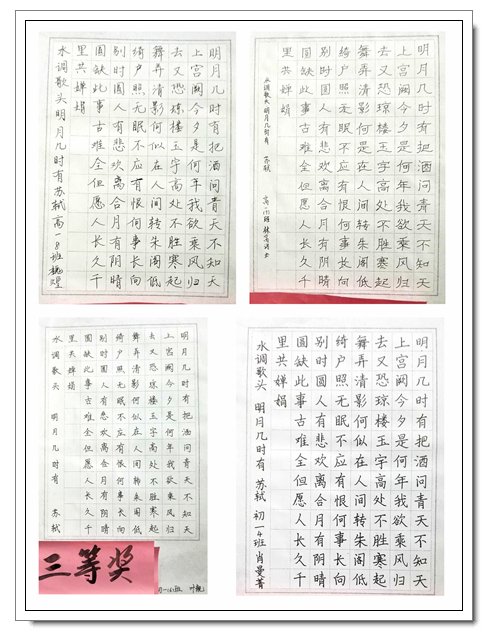 明月几时有把酒问青天不知天
上宫阙今夕是何年我欲乘风归
去又恐琼楼玉宇高处不胜寒起
舞弄清影何似在人间转朱阁低
绮户照无眠不应有恨何事长向
别时圆人有悲欢离合月有阴晴
圆缺此事古难全但愿人长久千
里共婵娟
水调歌头明月几时有苏轼高一8班
明月几时有把酒问青天不知天
上宫阙今夕是何年我欲乘风归
去又恐琼楼玉宇高处不胜寒起
舞弄清影何是在人间转朱阁低
绮户照无眠不应有恨何事长向
别时圆人有悲欢离合月有阴晴
圆缺此事古难全但愿人长久千
里共婵娟
水调歌头明月几时有 苏轼
明月几时有把酒问青天不知天
上宫阙今夕是何年我欲乘风归
去又恐琼楼玉宇高处不胜寒起
舞弄清影何似在人间转朱阁低
绮户照无眠不应有恨何事长向
别时圆人有悲欢离合月有阴晴
圆缺此事古难全但愿人长久千
里共婵娟
水调歌头 明月几时有 苏轼
三等奖
明月几时有把酒问青天不知天
上宫阙今夕是何年我欲乘风归
去又恐琼楼玉宇高处不胜寒起
舞弄清影何似在人间转朱阁低
绮户照无眠不应有恨何事长向
别时圆人有悲欢离合月有阴晴
圆缺此事古难全但愿人长久千
里共婵娟
水调歌头 明月几时有 苏轼 初一4班肖曼菁